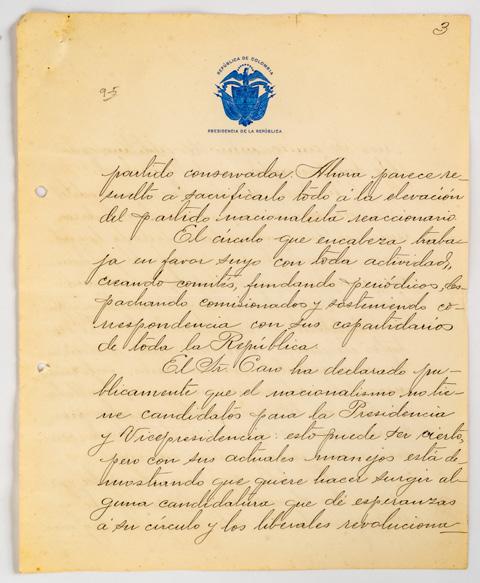 3
95
REPÚBLICA DE COLOMBIA
PRESIDENCIA DE LA REPÚBLICA
partido conservador. Ahora parece re-
suelto á sacrificarlo todo á la elevación
del partido nacionalista reaccionario
El círculo que encabeza traba-
ja en favor suyo con toda actividad,
creando comités, fundando periódicos, des-
pachando comisionados y sosteniendo co-
rrespondencia con sus copartidarios
de toda la República.
El Sr. Caro ha declarado pu-
blicamente que el nacionalismo no tie-
ne candidatos para la Presidencia
y Vicepresidencia: esto puede ser cierto,
pero con sus actuales manejos está de-
mostrando que quiere hacer surgir al-
guna candidatura que dé esperanzas
á su círculo y los liberales revoluciona-